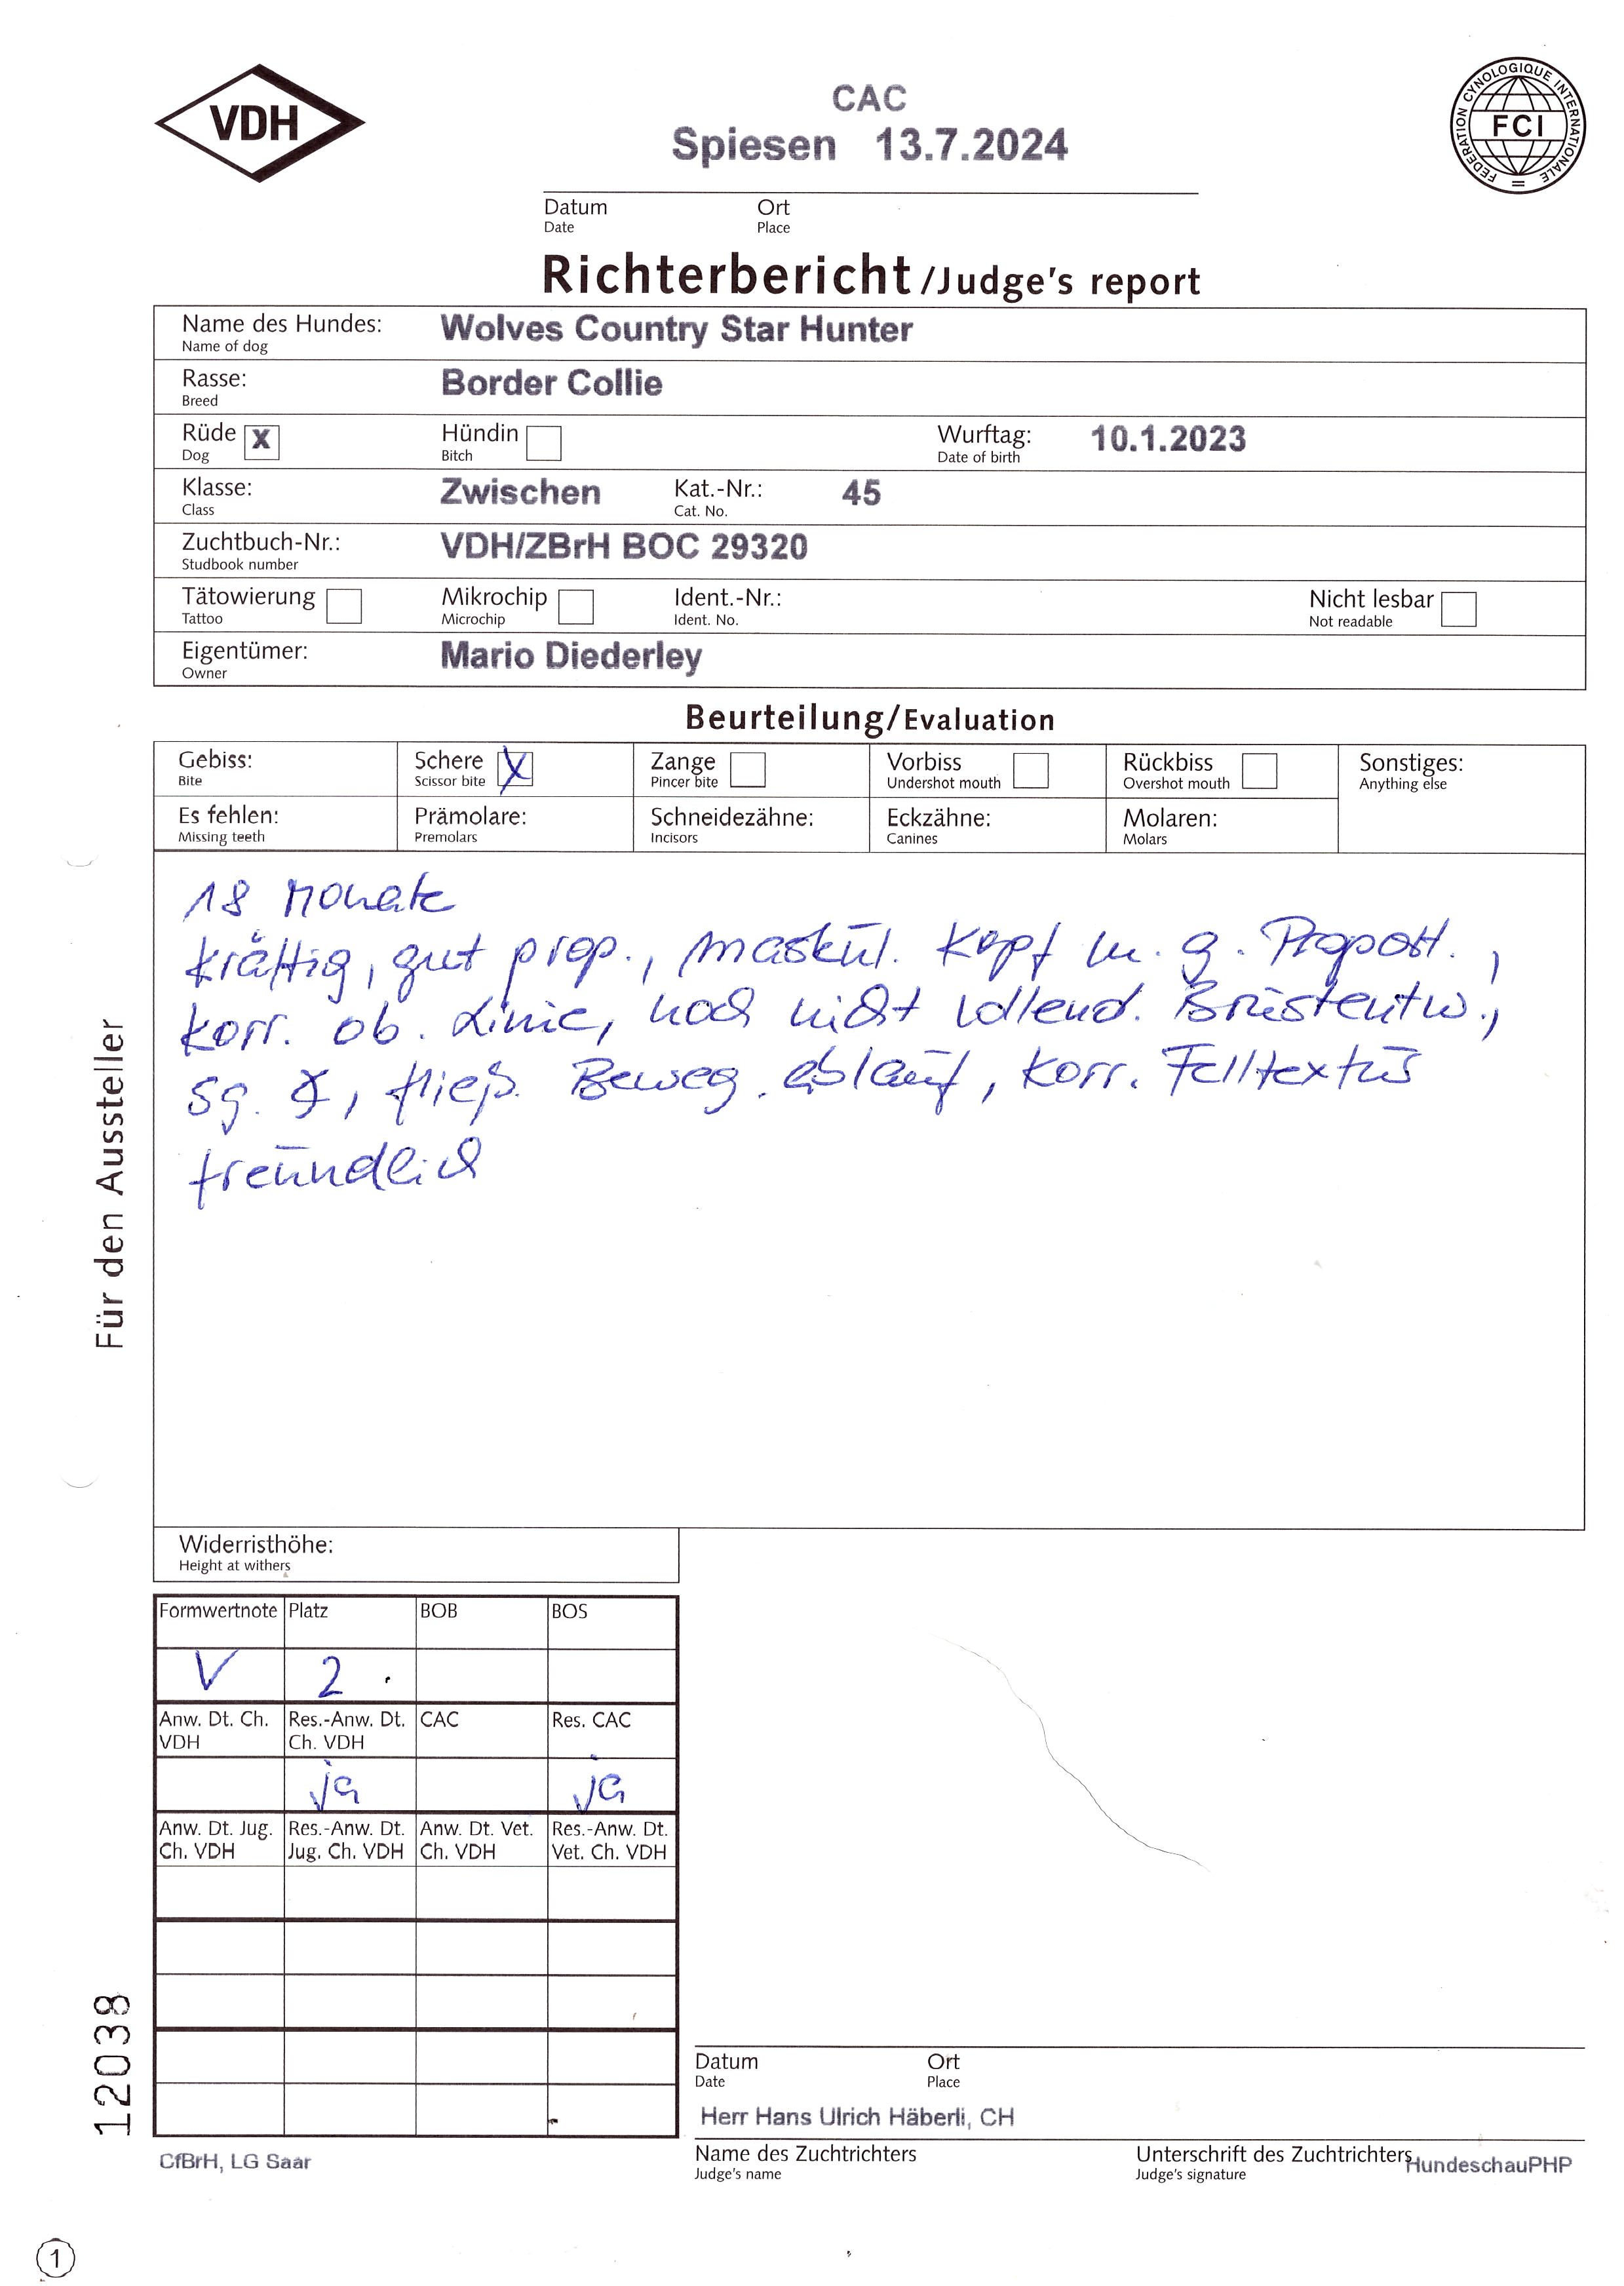 VDH
CAC
Spiesen 13.7.2024
FEDERATION CYNOLOGIQUE INTERNATIONALE
FCI
Datum Ort
Date Place
Richterbericht /Judge's report
Name des Hundes: Wolves Country Star Hunter
Name of dog
Rasse: Border Collie
Breed
Rüde X Hündin Wurftag: 10.1.2023
Dog Bitch Date of birth
Klasse: Zwischen Kat.-Nr.: 45
Class Cat. No.
Zuchtbuch-Nr.: VDH/ZBrH BOC 29320
Studbook number
Tätowierung Mikrochip Ident.-Nr.: Nicht lesbar
Tattoo Microchip Ident. No. Not readable
Eigentümer: Mario Diederley
Owner
Beurteilung/Evaluation
Gebiss: Schere X Zange Vorbiss Rückbiss Sonstiges:
Bite Scissor bite Pincer bite Undershot mouth Overshot mouth Anything else
Es fehlen: Prämolare: Schneidezähne: Eckzähne: Molaren:
Missing teeth Premolars Incisors Canines Molars
18 Monate
kräftig, gut prop., maskul. Kopf m. g. Proport.,
korr. ob. Linie, noch nicht vollend. Brustentw.,
sg. , fließ. Beweg.ablauf, korr. Felltextur
freundlich
Für den Aussteller
Widerristhöhe:
Height at withers
Formwertnote Platz BOB BOS
V 2
Anw. Dt. Ch. Res.-Anw. Dt. CAC Res. CAC
VDH Ch. VDH
ja ja
Anw. Dt. Jug. Res.-Anw. Dt. Anw. Dt. Vet. Res.-Anw. Dt.
Ch. VDH Jug. Ch. VDH Ch. VDH Vet. Ch. VDH
12038
Datum Ort
Date Place
Herr Hans Ulrich Häberli, CH
Name des Zuchtrichters Unterschrift des Zuchtrichters
Judge's name Judge's signature
CfBrH, LG Saar HundeschauPHP
1